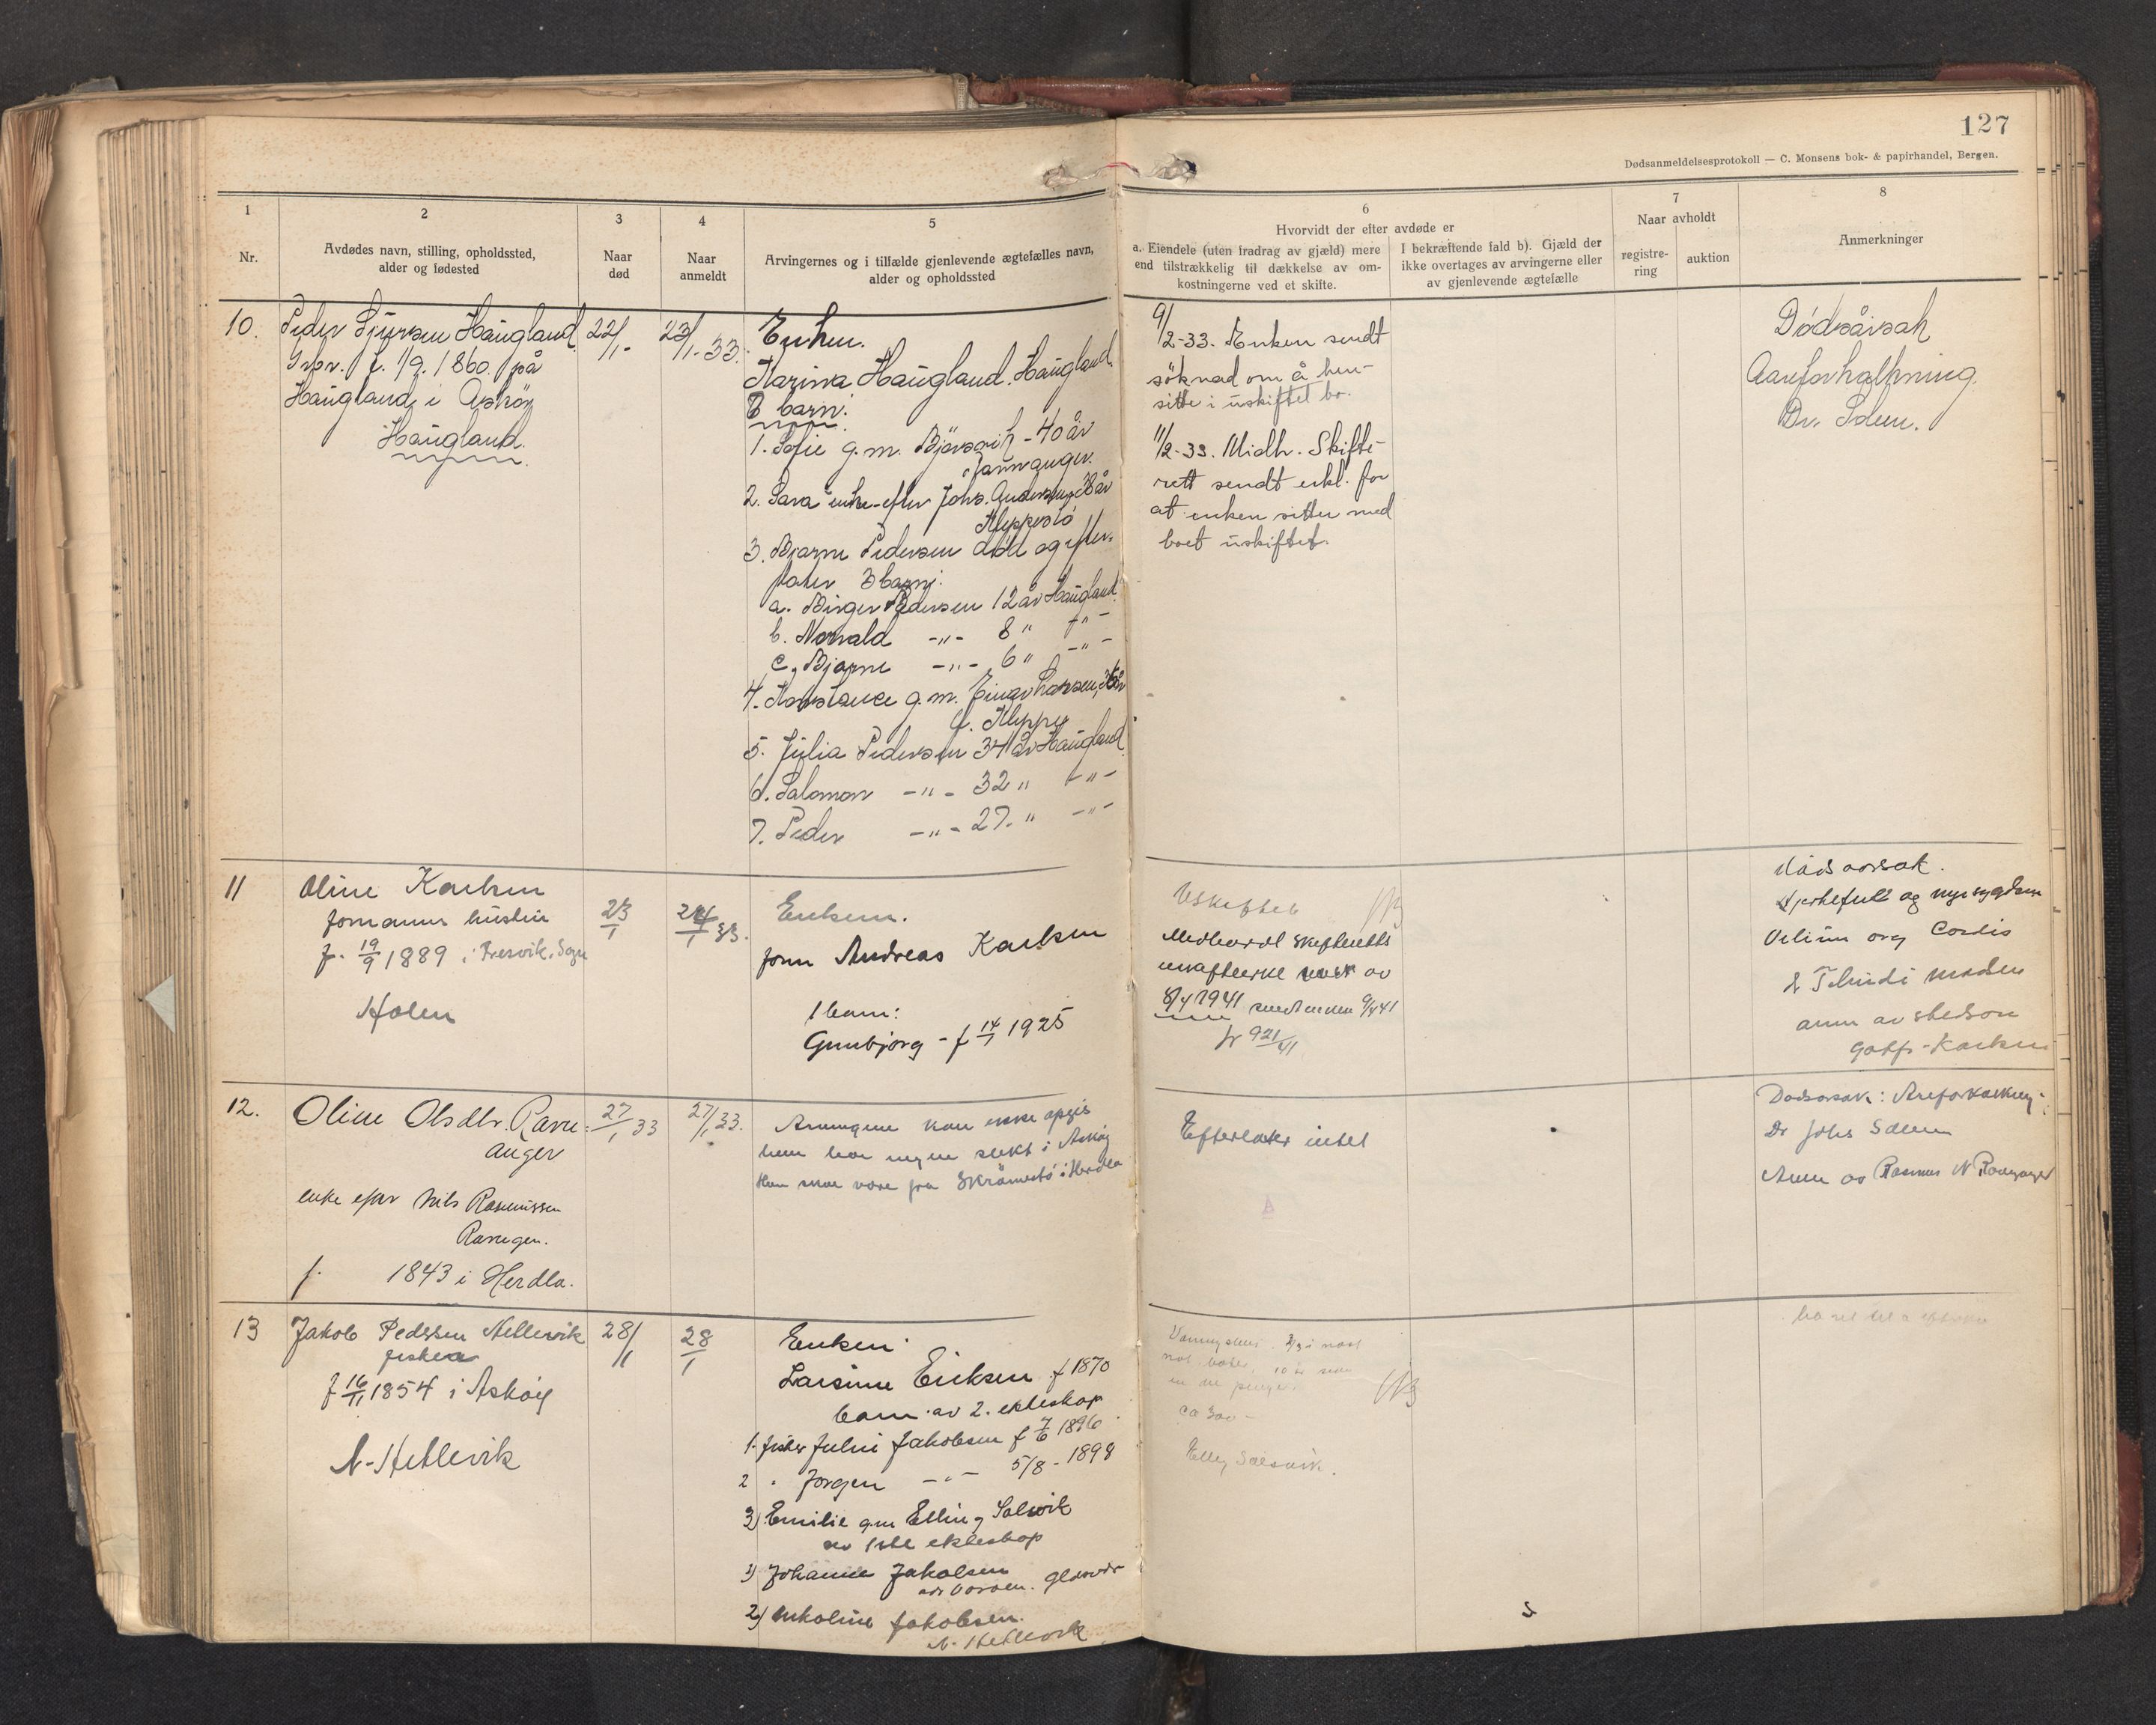 127
Dødsanmeldelsesprotokoll — C. Monsens bok- & papirhandel, Bergen.
1
Nr.
2
Avdødes navn, stilling, opholdssted,
alder og fødested
3
Naar
død
4
Naar
anmeldt
5
Arvingernes og i tilfælde gjenlevende ægtefælles navn,
alder og opholdssted
6
Hvorvidt der efter avdøde er
a. Eiendele (uten fradrag av gjæld) mere
end tilstrækkelig til dækkelse av om-
kostningerne ved et skifte.
I bekræftende fald b). Gjæld der
ikke overtages av arvingerne eller
av gjenlevende ægtefælle
7
Naar avholdt
registre-
ring
auktion
8
Anmerkninger
10.
Peder Sjursen Haugland
f. 1/9. 1860. på
Haugland i Askøy
Haugland.
22/1-
23/1-33.
Enken.
Karina Haugland. Haugland.
7 barn:
1. Sofie g.m. 40 år
2. Sara enke efter Johs. Andersen, 38 år
Kleppestö
3. Bjarne Pedersen död og efter-
later 3 barn:
a. Birger Pedersen 12 år Haugland.
b. Norvald -"- 8 " -"-
c. Bjarne -"- 6 " -"-
4. Konstance g.m. Einar Larsen, 36 år
Kleppe
5. Julia Pedersen 34 år Haugland.
6. Salomon -"- 32 " -"-
7. Peder -"- 27. " -"-
9/2-33. Enken sendt
söknad om å hen-
sitte i uskiftet bo.
11/2-33. Midh. Skifte-
rett sendt erkl. for
at enken sitter med
boet uskiftet.
Dödsårsak
Aareforkalkning.
Dr. Solem.
11
Oline Karlsen
formanns hustru
f. 19/9 1889 i Fresvik, Sogn
Holen
23/1
24/1 33.
Enkem.
form Andreas Karlsen
1 barn:
Gunbjørg - f 14/1 1925
Uskiftet
Medhordl skifteretts
av
8/4 1941 sendt enken 9/4 41
Jr 921/41
Dödsorsak.
Hjertefeil og nyresygdom
Cordis
anm av stedson
Karlsen
12.
Oline Olsdtr. Ravn-
anger
enke efter Nils Rasmussen
f. 1843 i Herdla.
27/1 33
27/1 33.
Arvingene kan ikke opgis
hun har ingen slekt i Askøy
Hun skal være fra Skråmestö i Herdla
Efterlater intet
Dødsorsak: Areforkalkning
Dr Johs Solem
Anm av Rasmus N Ravnanger
13
Jakob Pedersen Hetlevik
fisker
f 16/11 1854 i Askøy
N-Hetlevik
28/1
28/1
Enken
Larsine Eriksen f 1870
barn av 2. ekteskap
1. fisker Julius Jakobsen f 7/6 1896
2 " Jørgen -"- 5/8-1898
3) Emilie gm Elling Salsvik
av 1ste ekteskap
1) Johanne Jakobsen
2) Nikoline Jakobsen.
N-Hetlevik
ca 300-
Elling Salsvik.